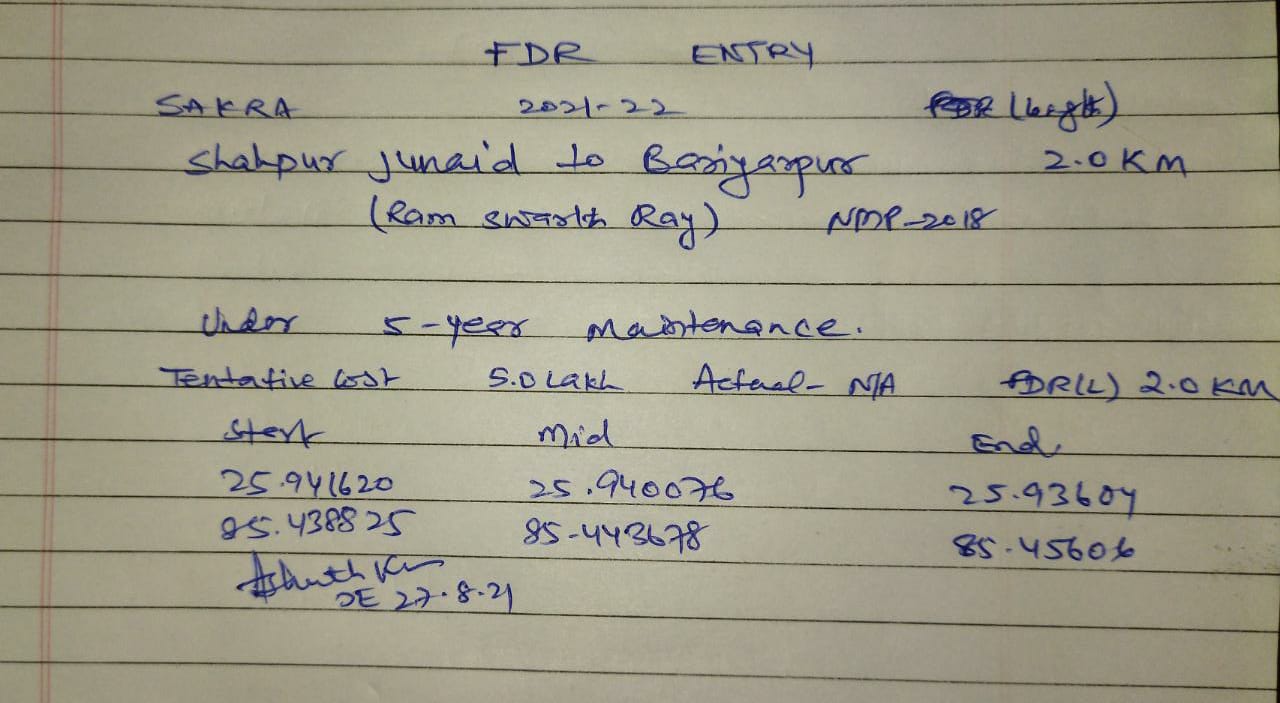 FDR ENTRY
SAKRA 2021-22 (length)
Shahpur Junaid to Bariyarpur 2.0 KM
(Ram swarth Ray) NMP-2018
Under 5-year maintenance.
Tentative Cost 5.0 Lakh Actual- N/A FDR(L) 2.0 KM
Start Mid End
25.941620 25.940076 25.93604
85.438825 85-443678 85.45606
JE 27.8.21